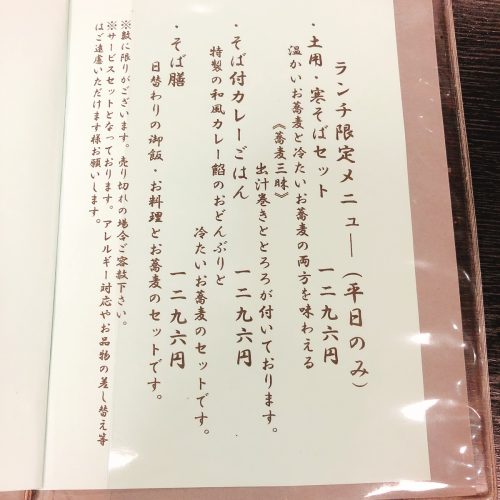 ランチ限定メニュー（平日のみ）
・土用・寒そばセット　一二九六円
温かいお蕎麦と冷たいお蕎麦の両方を味わえる
《蕎麦三昧》
出汁巻きととろろが付いております。
・そば付カレーごはん　一二九六円
特製の和風カレー餡のおどんぶりと
冷たいお蕎麦のセットです。
・そば膳　一二九六円
日替わりの御飯・お料理とお蕎麦のセットです。
※数に限りがございます。売り切れの場合ご容赦下さい。
※サービスセットとなっております。アレルギー対応やお品物の差し替え等
はご遠慮いただけます様お願いします。